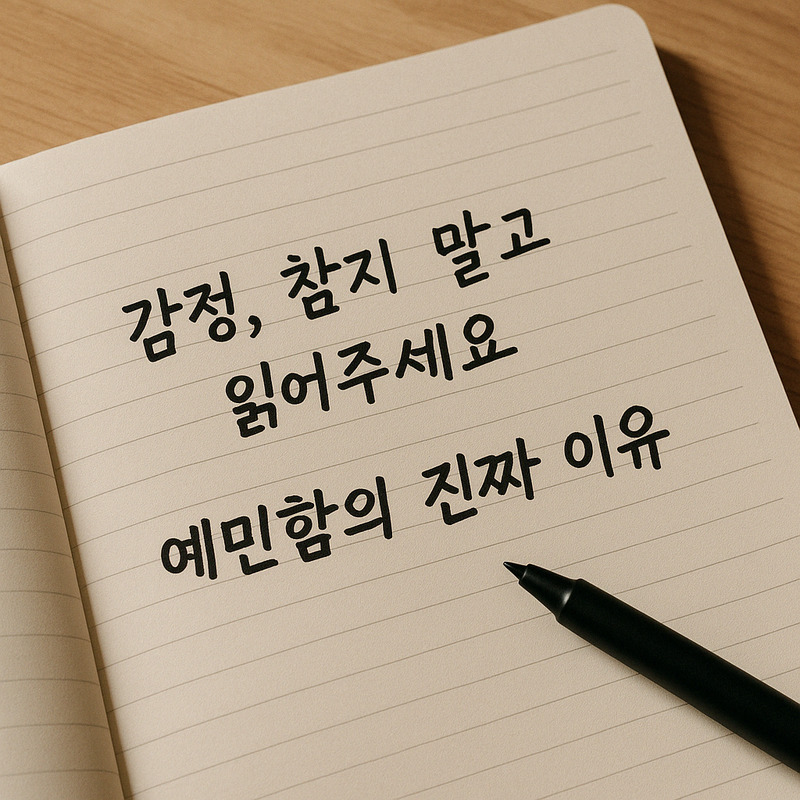 감정, 참지 말고
읽어주세요
예민함의 진짜 이유